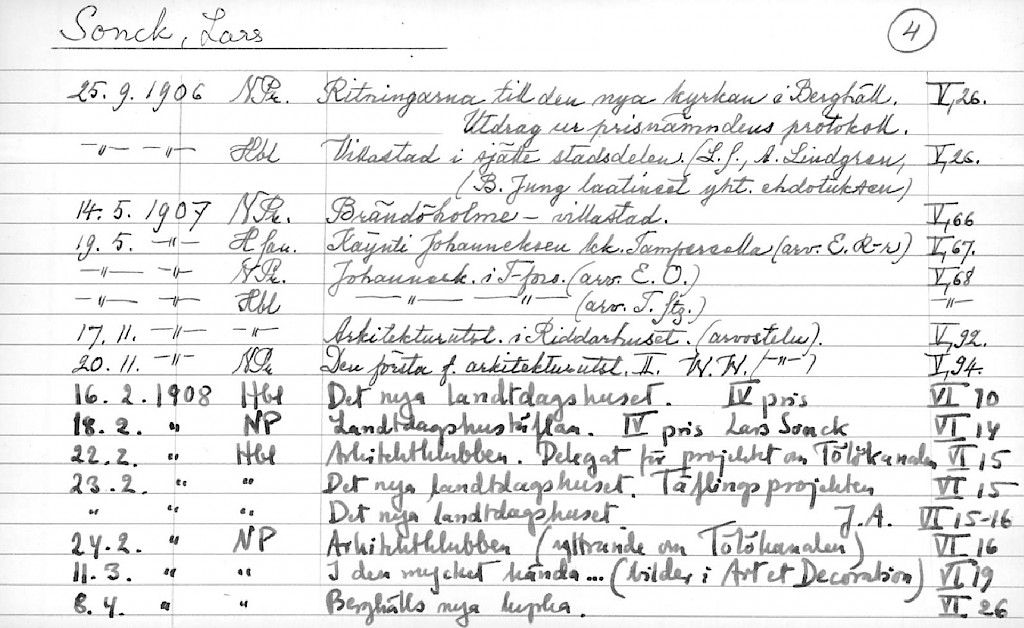 Sonck, Lars 4
25. 9. 1906 N.Pr. Ritningarna till den nya kyrkan i Berghäll. V, 26.
Utdrag ur prisnämndens protokoll.
-"- -"- Hbl Villastad i sjätte stadsdelen. (L.S., A. Lindgren, V, 26.
(B. Jung laatineet yht. ehdotuksen)
14. 5. 1907 N.Pr. Brändöholme - villastad. V, 66
19. 5. -"- H.San. Käynti Johanneksen kk. Tampereella (arv. E. R-r) V, 67.
-"- -"- N.Pr. Johannesk. i T-fors. (arv. E. O.) V, 68
-"- -"- Hbl -"- -"- (arv. T. Stg.) -"-
17. 11. -"- -"- Arkitekturutst. i Riddarhuset. (arvostelu). V, 92.
20. 11. -"- N.Pr. Den första f. arkitekturutst. II. W. W. (-"-) V, 94.
16. 2. 1908 Hbl Det nya landtdagshuset. IV pris VI 10
18. 2. " NP Landtdagshustäflan. IV pris Lars Sonck VI 14
22. 2. " Hbl Arkitektklubben. Delegat för projekt om Tölökanalen VI 15
23. 2. " " Det nya landtdagshuset. Täflingsprojekten VI 15
" " " Det nya landtdagshuset J.A. VI 15-16
24. 2. " NP Arkitektklubben (yttrande om Tölökanalen) VI 16
11. 3. " " I den mycket kända... (bilder i Art et Decoration) VI 19
8. 4. " " Berghälls nya kyrka. VI. 26